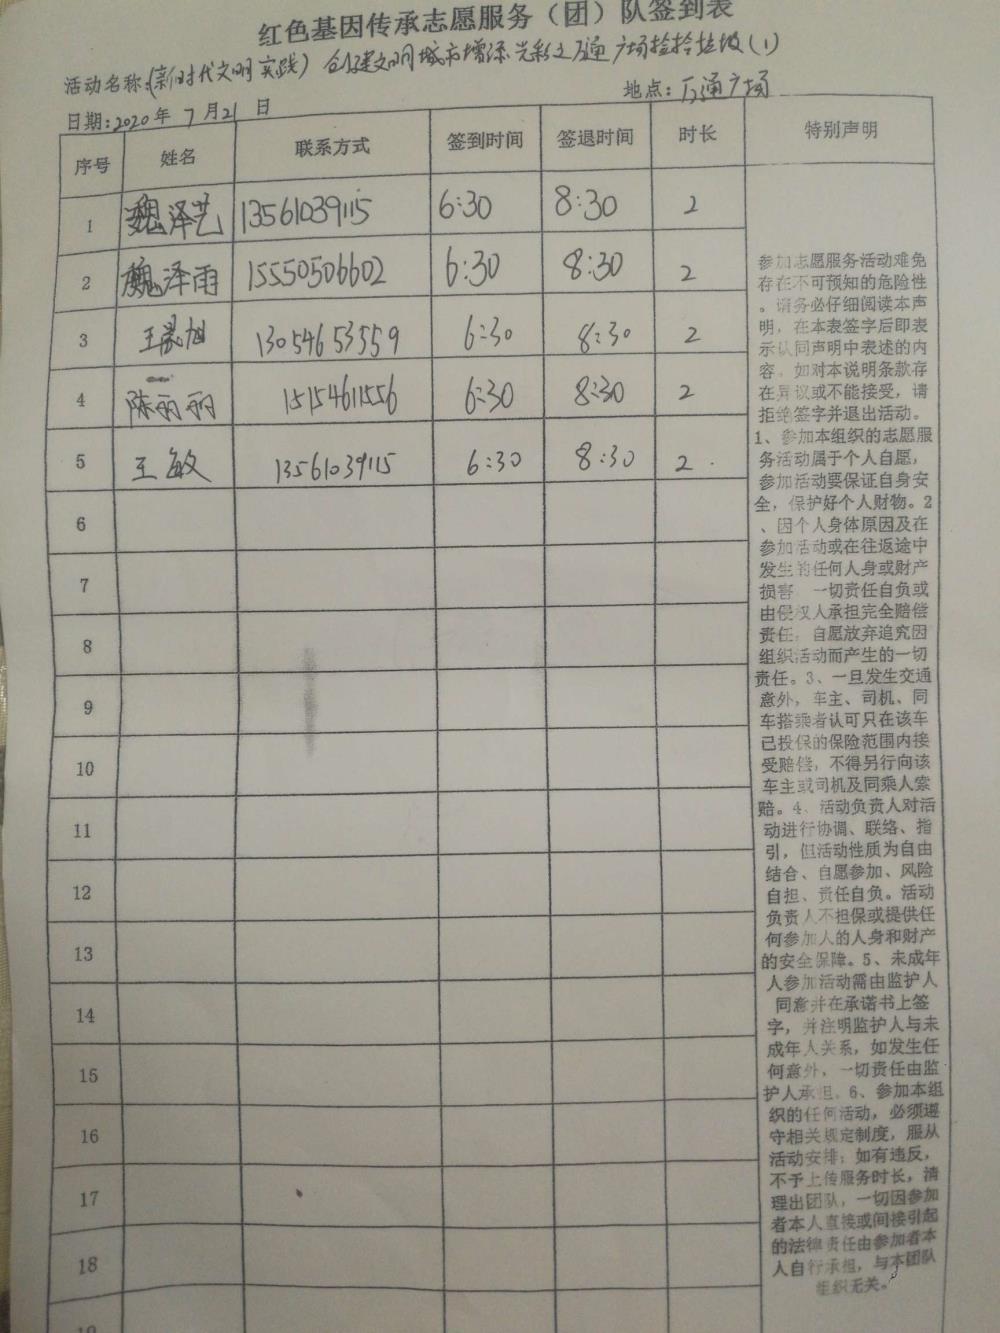 红色基因传承志愿服务（团）队签到表
活动名称:(新时代文明实践) 创建文明城市增添光彩之万通广场捡拾垃圾(1)
日期:2020年 7月21日 地点:万通广场
序号 姓名 联系方式 签到时间 签退时间 时长 特别声明
1 魏泽艺 13561039115 6:30 8:30 2
2 魏泽雨 15550506602 6:30 8:30 2
3 王晨旭 13054653559 6:30 8:30 2
4 陈丽丽 15154611556 6:30 8:30 2
5 王敏 13561039115 6:30 8:30 2
6
7
8
9
10
11
12
13
14
15
16
17
18
19
参加志愿服务活动难免
存在不可预知的危险性
。请务必仔细阅读本声
明，在本表签字后即表
示认同声明中表述的内
容。如对本说明条款存
在异议或不能接受，请
拒绝签字并退出活动。
1、参加本组织的志愿服
务活动属于个人自愿，
参加活动要保证自身安
全，保护好个人财物。2
、因个人身体原因及在
参加活动或在往返途中
发生的任何人身或财产
损害，一切责任自负或
由侵权人承担完全赔偿
责任，自愿放弃追究因
组织活动而产生的一切
责任。3、一旦发生交通
意外，车主、司机、同
车搭乘者认可只在该车
已投保的保险范围内接
受赔偿，不得另行向该
车主或司机及同乘人索
赔。4、活动负责人对活
动进行协调、联络、指
引，但活动性质为自由
结合、自愿参加、风险
自担、责任自负。活动
负责人不担保或提供任
何参加人的人身和财产
的安全保障。5、未成年
人参加活动需由监护人
同意并在承诺书上签
字，并注明监护人与未
成年人关系，如发生任
何意外，一切责任由监
护人承担。6、参加本组
织的任何活动，必须遵
守相关规定制度，服从
活动安排；如有违反，
不予上传服务时长，清
理出团队，一切因参加
者本人直接或间接引起
的法律责任由参加者本
人自行承担，与本团队
组织无关。